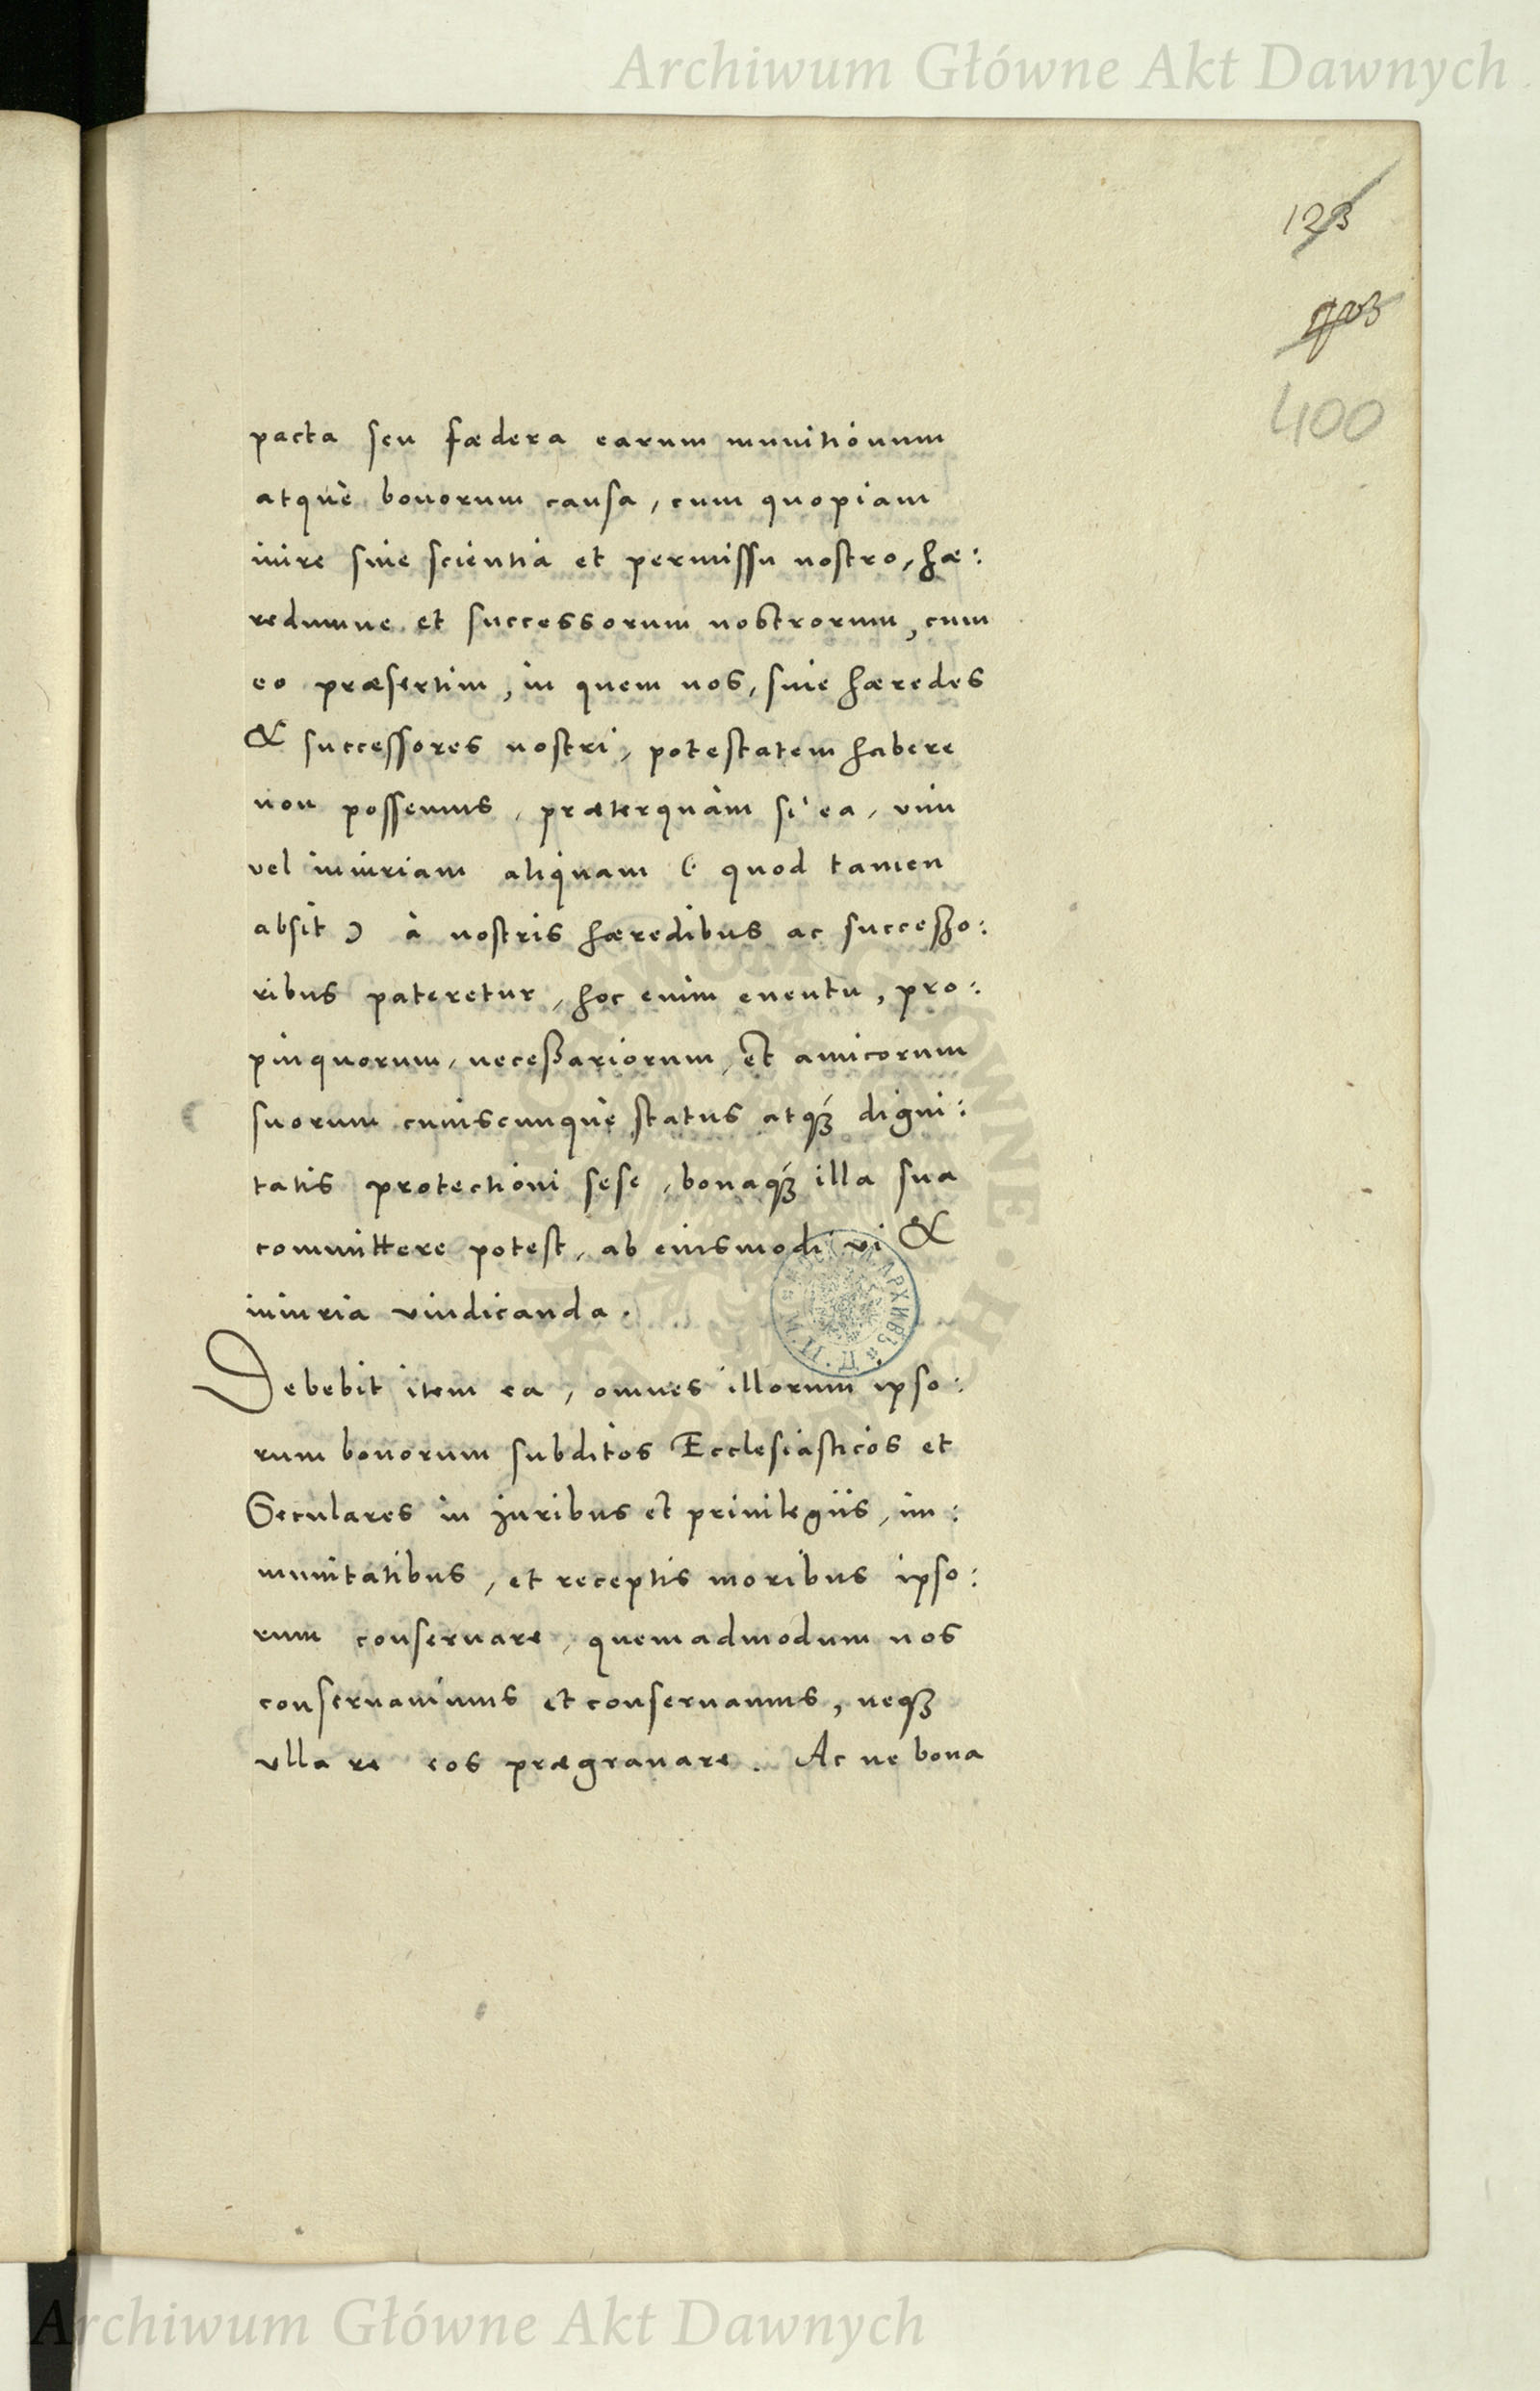 Archiwum Główne Akt Dawnych
123
400
pacta seu fædera earum munitionum
atquè bonorum causa, cum quopiam
inire sine scientia et permissu nostro, hæ:
redumue et successorum nostrorum, cum
eo præsertim, in quem nos, siue hæredes
& successores nostri, potestatem habere
non possemus, præterquàm si ea, vim
vel iniuriam aliquam ( quod tamen
absit ) à nostris hæredibus ac successo:
ribus pateretur, hoc enim euentu, pro:
pinquorum, necessariorum, et amicorum
suorum cuiuscunquè status atq́ꝫ digni:
tatis protectioni sese, bonaq́ꝫ illa sua
committere potest, ab eiusmodi vi &
iniuria vindicanda.
Debebit item ea, omnes illorum ipso:
rum bonorum subditos Ecclesiasticos et
Seculares in juribus et priuilegiis, im:
munitatibus, et receptis moribus ipso:
rum conseruare, quemadmodum nos
conseruauimus et conseruamus, neqꝫ
vlla re eos prægrauare. Ac ne bona
Archiwum Główne Akt Dawnych